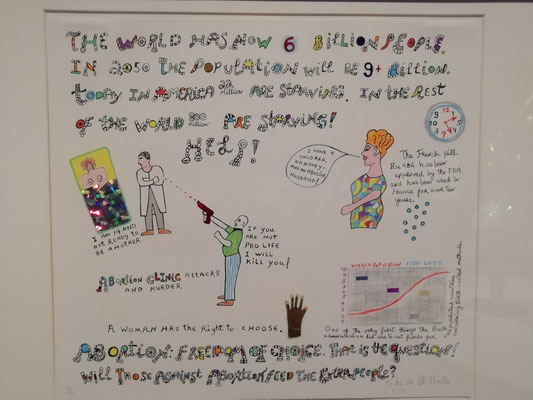 THE WORLD HAS NOW 6 BILLION PEOPLE.
IN 2050 THE POPULATION WILL BE 9+ BILLION.
TODAY IN AMERICA 22 MILLION ARE STARVING. IN THE REST
OF THE WORLD 800 ARE STARVING!
HELP!
I HAVE 4
CHILDREN,
NO MONEY,
AND AN ABUSIVE
HUSBAND!
The French pill
Ru 486 has been
approved by the FDA
and has been used in
France for over ten
years.
I AM 14 AND
NOT READY TO
BE A MOTHER
IF YOU
ARE NOT
PRO LIFE
I WILL
KILL YOU!
ABORTION CLINIC ATTACKS
AND MURDER
WORLD POPULATION
A WOMAN HAS THE RIGHT TO CHOOSE.
One of the very first things the Bush
was to cut funds for
ABORTION: FREEDOM OF CHOICE. THAT IS THE QUESTION!
WILL THOSE AGAINST ABORTION FEED THE EXTRA PEOPLE?
Niki de St Phalle